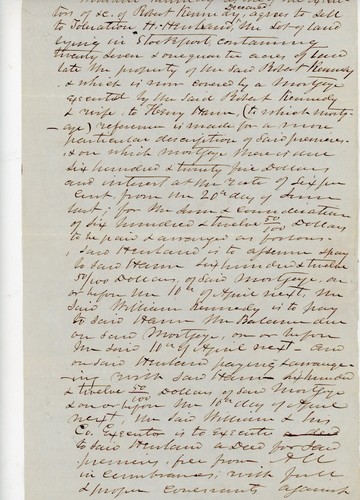 tors &c. of Robert Kennedy, deceased agrees to sell
to Toleration H. Heuland, the Lot of land
lying in Stockport, containing
twenty seven & one quarter acres of land
late the property of the said Robert Kennedy
& which is now covered by a Mortgage
executed by the said Robert Kennedy
& wife to Henry Hamm, (to which Mort-
age) reference is made for a more
particular description of said premises.
& on which mortgage there is due
six hundred & twenty five Dollars
and interest at the rate of six per
cent. from the 20th day of June
last; for the sum & consideration
of six hundred & twelve 50/100 Dollars
to be paid & arranged as follows.
said Heuland is to assume & pay
to said Hamm six hundred & twelve
50/100 Dollars, of said Mortgage, on
or before the 10th of April next, the
said William Kennedy is to pay
to said Hamm the Balance due
on said Mortgage, on or before
the said 10th of April next - and
on said Heuland paying & arrange-
ing with said Hamm six hundred
& twelve 50/100 Dollars of said Mortgage
& on or before the 10th day of April
next, the said William & his
Co. Executor is to execute
to said Heuland a Deed for said
premises, free from all
incumbrances; with full
& proper covenants